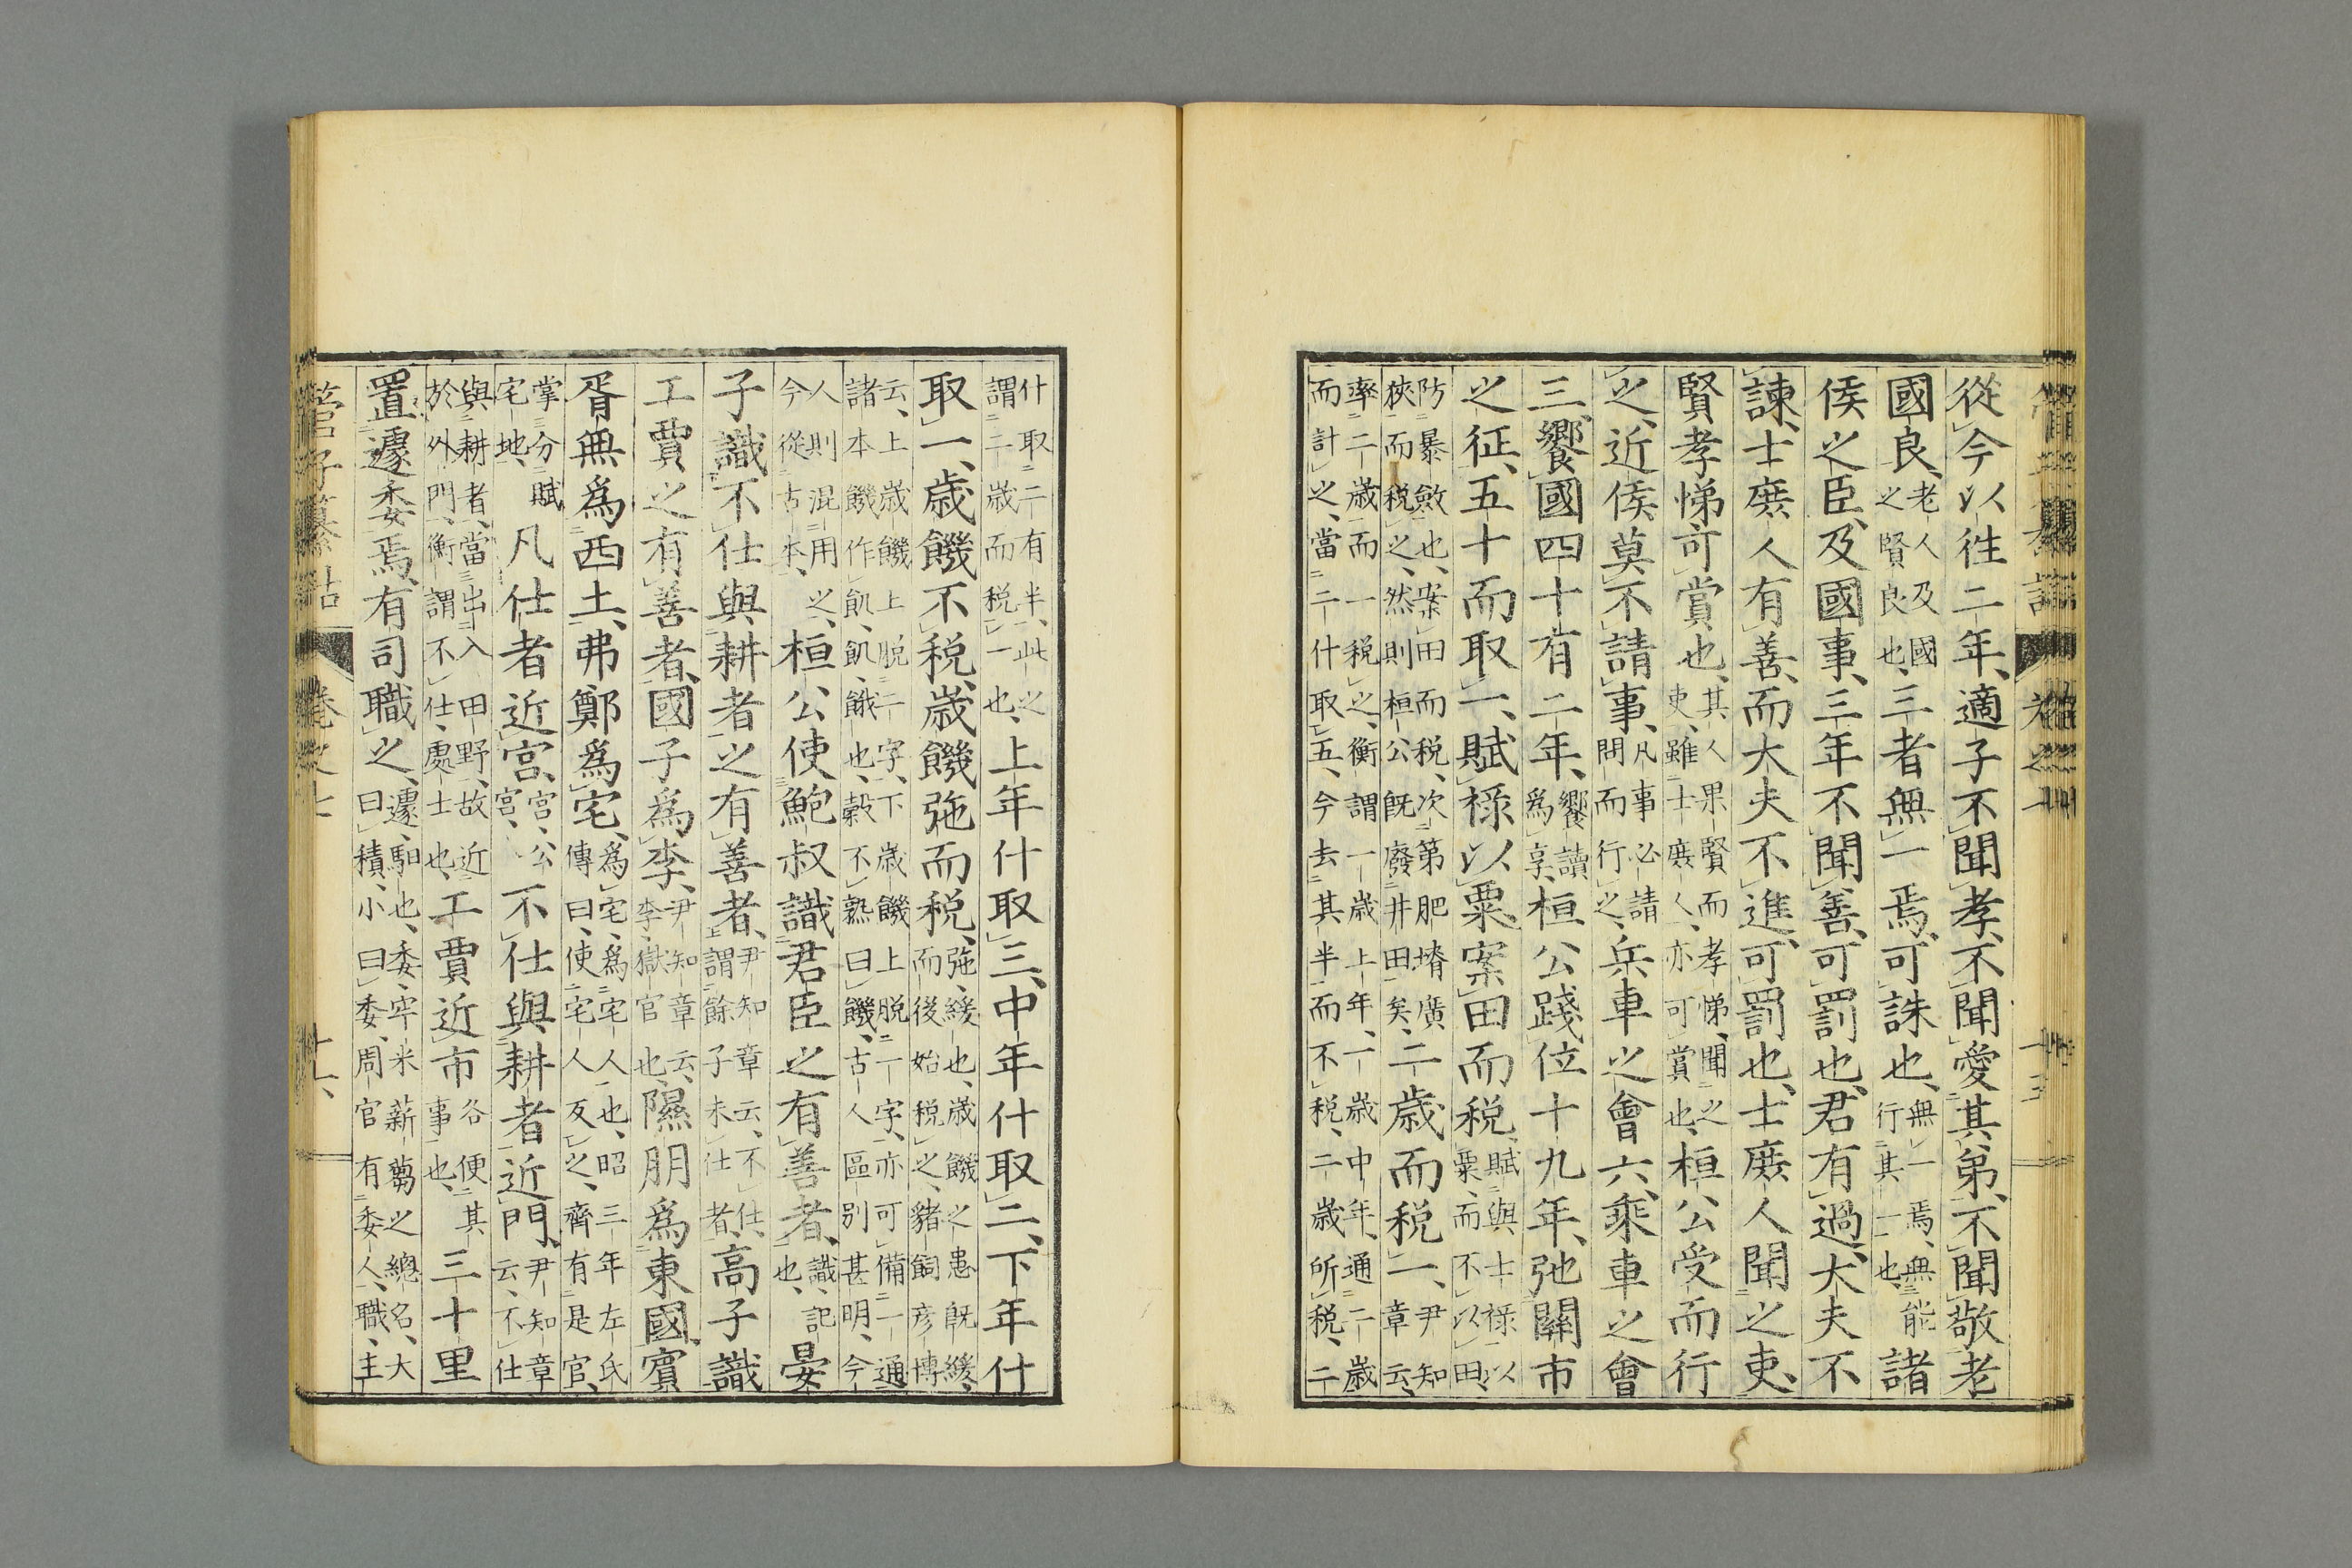 從今以徃二年、適子不聞孝、不聞愛其弟、不聞敬老
國良、老人及國之賢良也、三者無一焉、可誅也、無一焉、無能行其一也、諸
侯之臣、及國事、三年不聞善、可罰也、君有過、大夫不
諫、士庶人有善、而大夫不進、可罰也、士庶人聞之吏、
賢孝悌可賞也、其人果賢而孝悌、聞之吏、雖士庶人、亦可賞也、桓公受而行
之、近侯莫不請事、凡事必請問而行之、兵車之會六、乘車之會
三、饗國四十有二年、饗讀爲享、桓公踐位十九年、弛關市
之征、五十而取一、賦祿以粟、案田而税、賦與士祿以粟、而不以田、
防暴斂也、案田而税、次第肥堉廣狹而税之、然則桓公既廢井田矣、二歲而税一、尹知章云、
率二歲而一税之、衡謂一歲上年、一歲中年、通二歲而計之、當二什取五、今去其半而不税、二歲所税、二
什取二有半、此之謂二歲而税一也、上年什取三、中年什取二、下年什
取一、歲饑不税、歲饑弛而税、弛、緩也、歲饑之患既緩、而後始税之、豬飼彦博
云、上歲饑上脱二字、下歲饑上脱一字、亦可備一通、諸本饑作飢、飢、餓也、穀不熟曰饑、古人區別甚明、今
人則混用之、今從古本、桓公使鮑叔識君臣之有善者、識、記也、晏
子識不仕與耕者之有善者、尹知章云、不仕、謂餘子未仕者、高子識
工賈之有善者、國子爲李、尹知章云、李、獄官也、隰朋爲東國、賓
胥無爲西土、弗鄭爲宅、爲宅、爲宅人也、昭三年左氏傳曰、使宅人反之、齊有是官、
掌分賦宅地、凡仕者近宮、宮、公宮、不仕與耕者近門、尹知章云、不仕
與耕者、當出入田野、故近於外門、衡謂不仕、處士也、工賈近市、各便其事也、三十里
置遽委焉、有司職之、遽、馹也、委、牢米薪芻之總名、大曰積、小曰委、周官有委人、職、主
管子纂詁 卷之七 十六